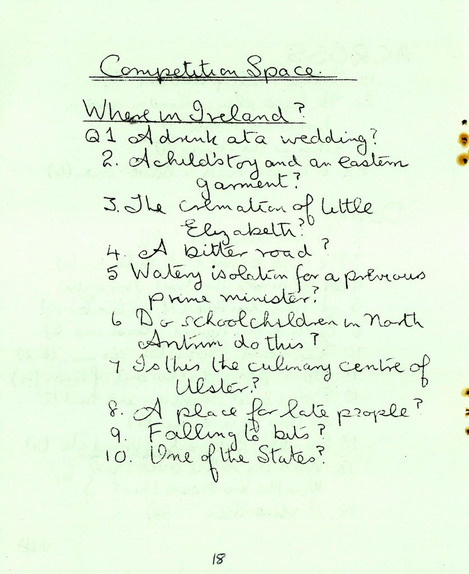 Competition Space.
Where in Ireland?
Q1 A drink at a wedding?
2. A child's toy and an eastern
garment?
3. The cremation of little
Elizabeth?
4. A bitter road?
5 Watery isolation for a previous
prime minister?
6 Do schoolchildren in North
Antrim do this?
7 Is this the culinary centre of
Ulster?
8. A place for late people?
9. Falling to bits?
10. One of the States?
18